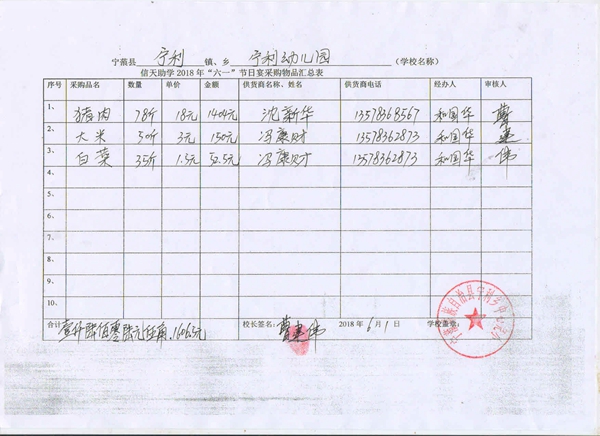 宁蒗县 宁利 镇、乡 宁利幼儿园 (学校名称)
信天助学2018年“六一”节日宴采购物品汇总表
序号 采购品名 数量 单价 金额 供货商名称、姓名 供货商电话 经办人 审核人
1、 猪肉 78斤 18元 1404元 沈新华 13578368567 和国华 曹
2、 大米 50斤 3元 150元 冯康财 13578362873 和国华 建
3、 白菜 35斤 1.5元 52.5元 冯康财 13578362873 和国华 伟
4、
5、
6、
7、
8、
9、
10、
合计 壹仟陆佰零陆元伍角.1606.5元 校长签名: 曹建伟 2018年6月1日 学校盖章: